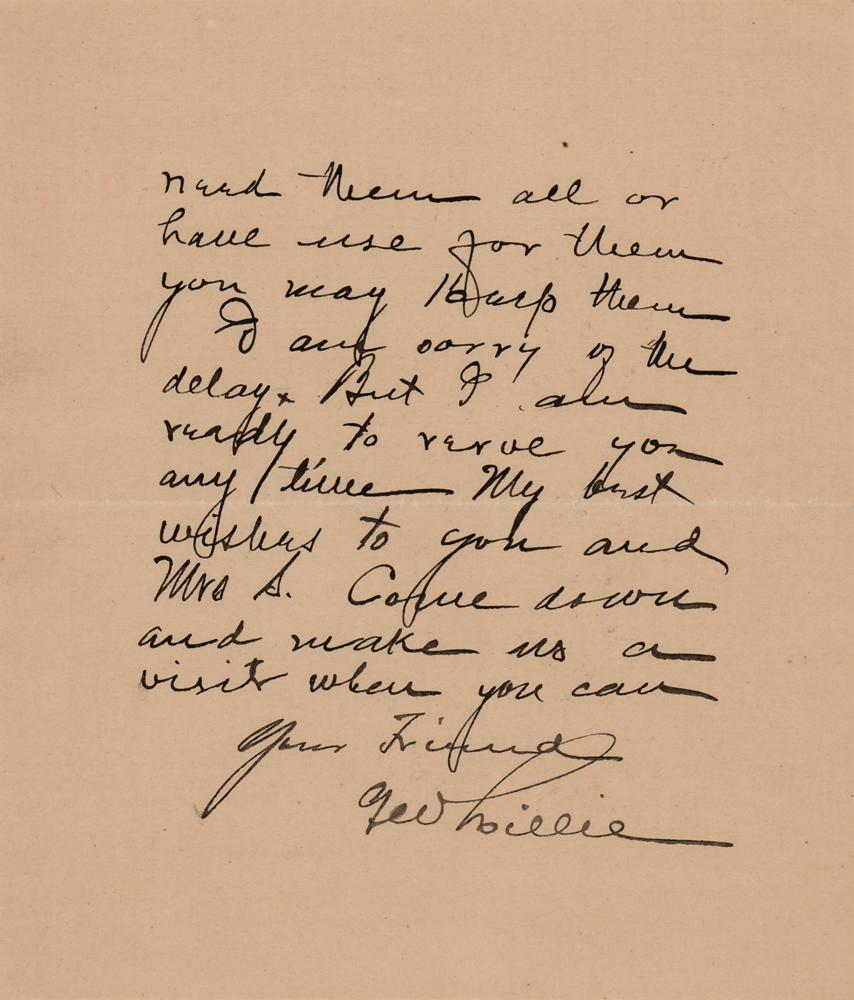 need them all or
have use for them
you may keep them
I am sorry of the
delay. But I am
ready to serve you
any time My best
wishes to you and
Mrs S. Come down
and make us a
visit when you can
Your Friend
Geo